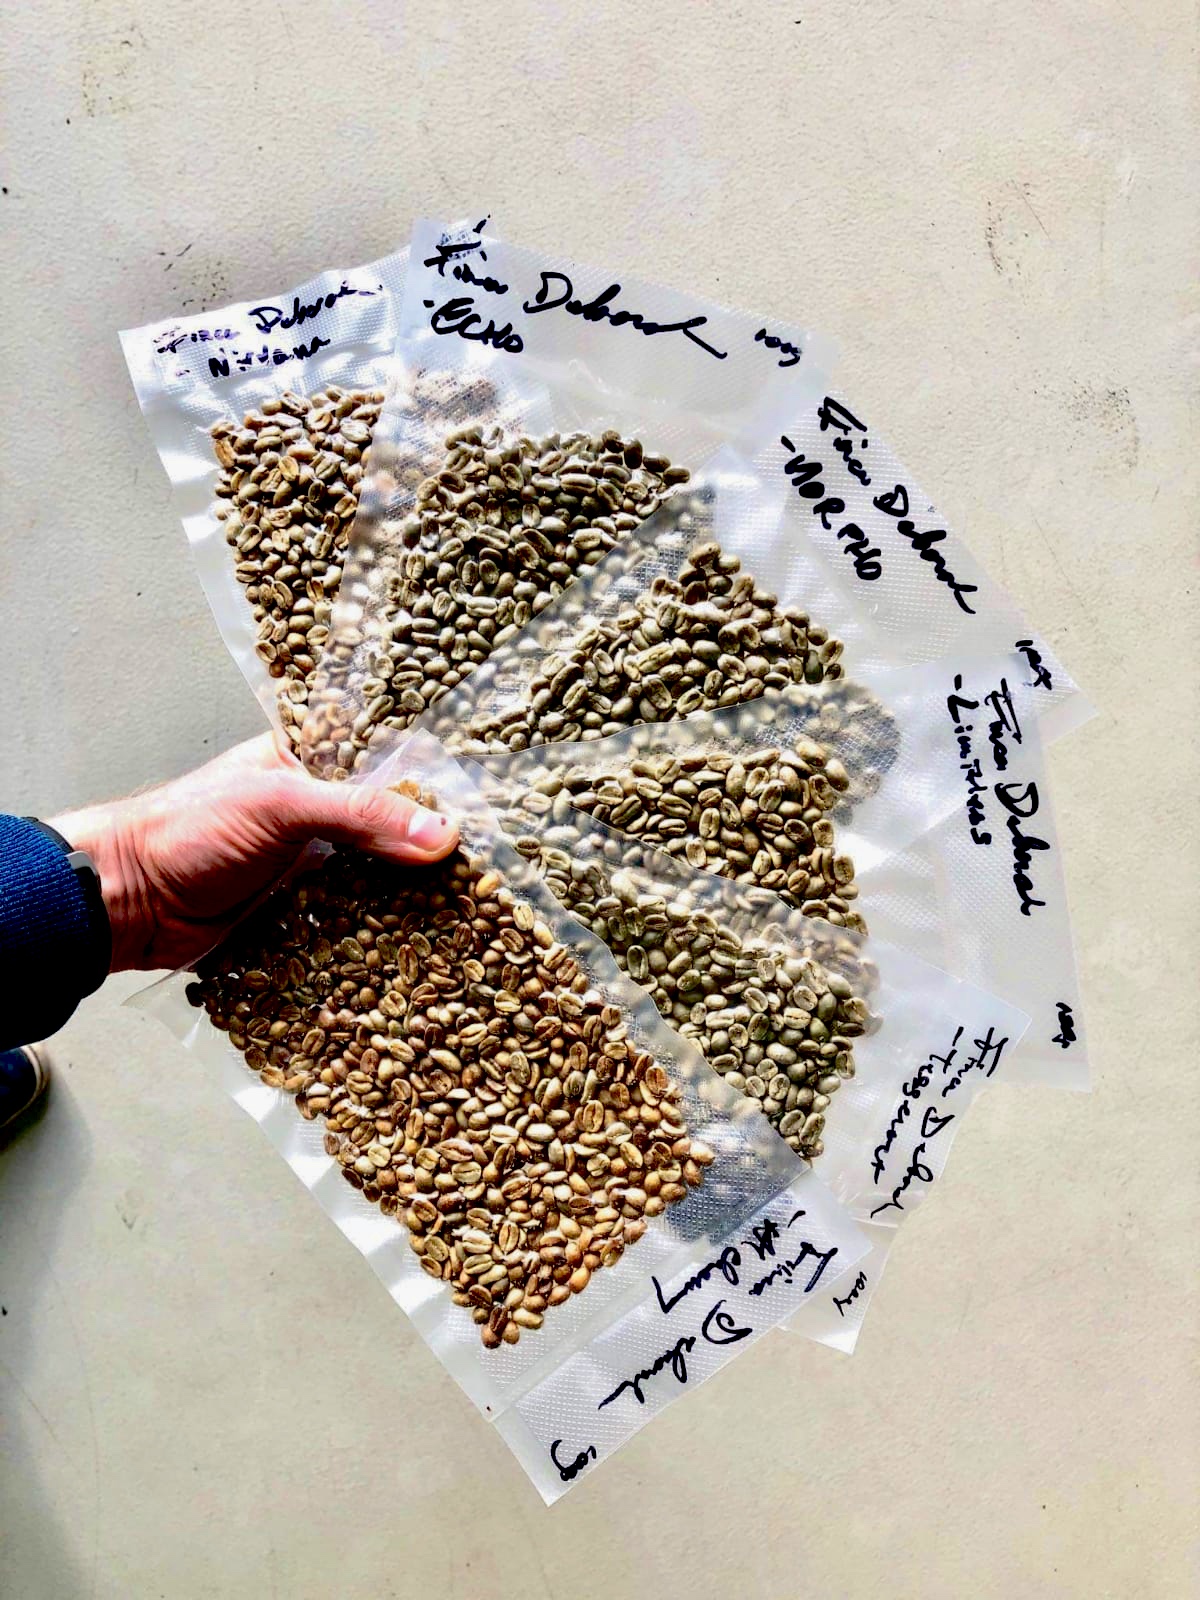 Finca Deborah
- Nirvana
Finca Deborah
- ECHO
100g
Finca Deborah
- MORPHO
100g
Finca Deborah
- Limitless
100g
Finca Deborah
100g
Finca Deborah
- Alchemy
100g